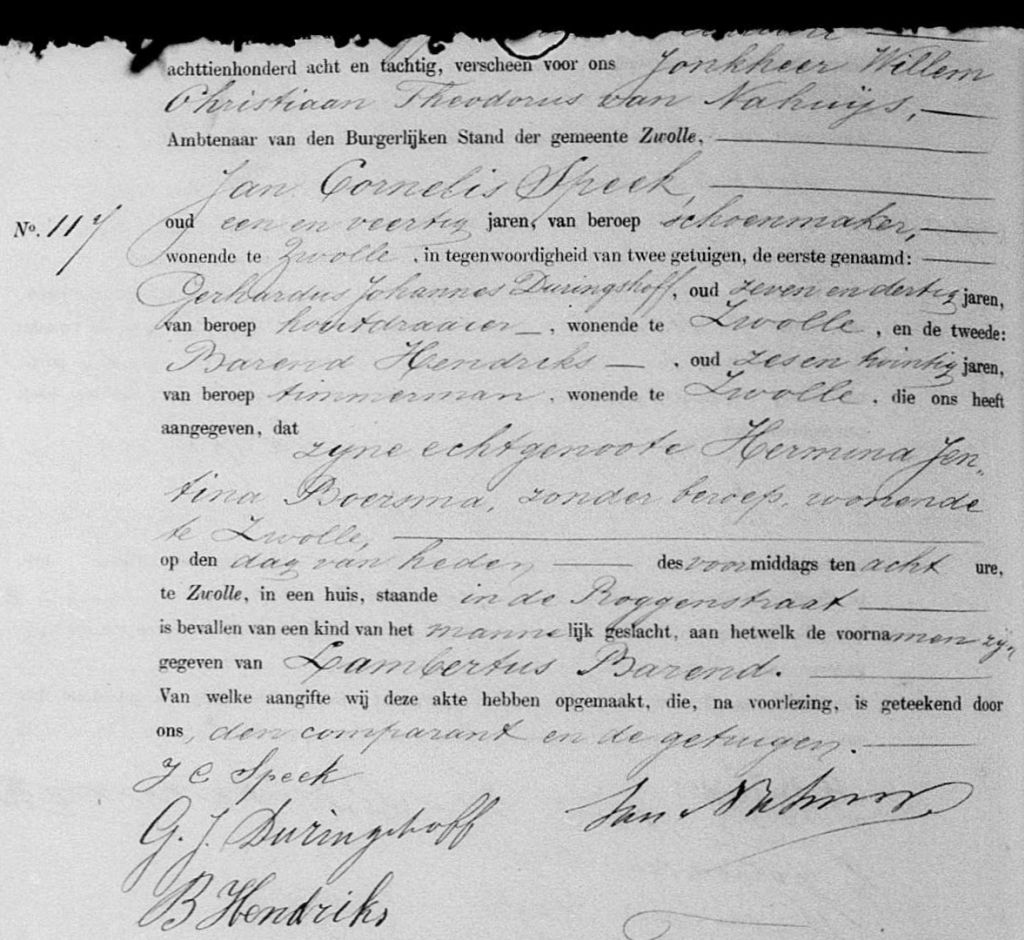 achttienhonderd acht en tachtig, verscheen voor ons Jonkheer Willem
Christiaan Theodorus van Nahuijs,
Ambtenaar van den Burgerlijken Stand der gemeente Zwolle,
Jan Cornelis Speek,
No. 117 oud een en veertig jaren, van beroep schoenmaker,
wonende te Zwolle, in tegenwoordigheid van twee getuigen, de eerste genaamd:
Gerhardus Johannes Duringshoff, oud zeven en dertig jaren,
van beroep houtdraaier, wonende te Zwolle, en de tweede:
Barend Hendriks, oud zes en twintig jaren,
van beroep timmerman, wonende te Zwolle, die ons heeft
aangegeven, dat
zijne echtgenoote Hermina Jen„
tina Boersma, zonder beroep, wonende
te Zwolle,
op den dag van heden, des voormiddags ten acht ure,
te Zwolle, in een huis, staande in de Roggenstraat
is bevallen van een kind van het mannelijk geslacht, aan hetwelk de voornamen zijn
gegeven van Lambertus Barend.
Van welke aangifte wij deze akte hebben opgemaakt, die, na voorlezing, is geteekend door
ons, den comparant en de getuigen.
J C Speek
G. J. Duringshoff
van Nahuijs
B Hendriks